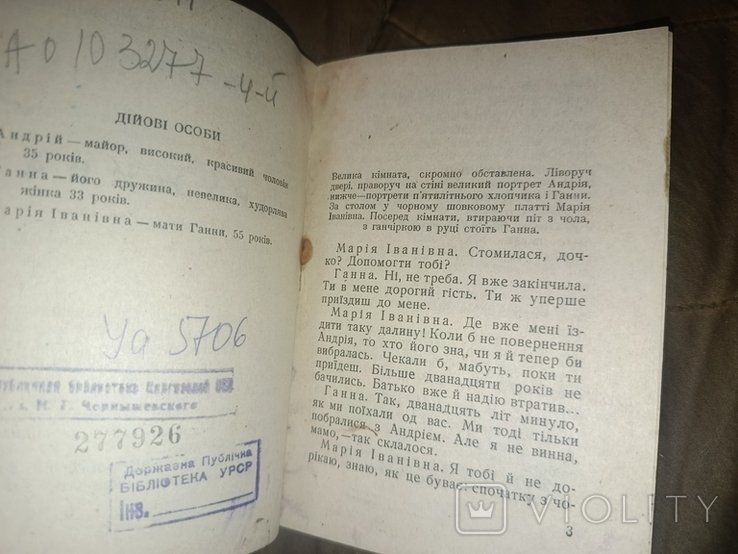 А0103277-ч-й
ДІЙОВІ ОСОБИ
Андрій — майор, високий, красивий чоловік
35 років.
Ганна — його дружина, невелика, худорлява
жінка 33 років.
Марія Іванівна — мати Ганни, 55 років.
Уа 5706
библиотека
Чернышевского
277926
Державна Публічна
БІБЛІОТЕКА УРСР
ІНВ.
Велика кімната, скромно обставлена. Ліворуч
двері, праворуч на стіні великий портрет Андрія,
нижче—портрети п'ятилітнього хлопчика і Ганни.
За столом у чорному шовковому платті Марія
Іванівна. Посеред кімнати, втираючи піт з чола,
з ганчіркою в руці стоїть Ганна.
Марія Іванівна. Стомилася, доч-
ко? Допомогти тобі?
Ганна. Ні, не треба. Я вже закінчила.
Ти в мене дорогий гість. Ти ж уперше
приїздиш до мене.
Марія Іванівна. Де вже мені їз-
дити таку далину! Коли б не повернення
Андрія, то хто його зна, чи я й тепер би
вибралась. Чекали б, мабуть, поки ти
приїдеш. Більше дванадцяти років не
бачились. Батько вже й надію втратив...
Ганна. Так, дванадцять літ минуло,
як ми поїхали од вас. Ми тоді тільки
побралися з Андрієм. Але я не винна,
мамо,—так склалося.
Марія Іванівна. Я тобі й не до-
рікаю, знаю, як це буває спочатку з чо-
3
VIOLITY